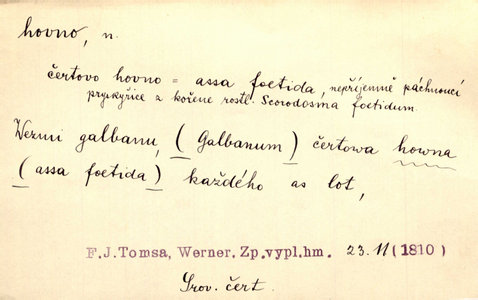 hovno, n.
čertovo hovno = assa foetida, nepříjemně páchnoucí
pryskyřice z kořene rostl. Scorodosma foetidum.
Wezmi galbanu, (Galbanum) čertowa howna
(assa foetida) každého as lot,
F.J.Tomsa, Werner. Zp.vypl.hm. 23. 11 (1810)
Srov. čert.